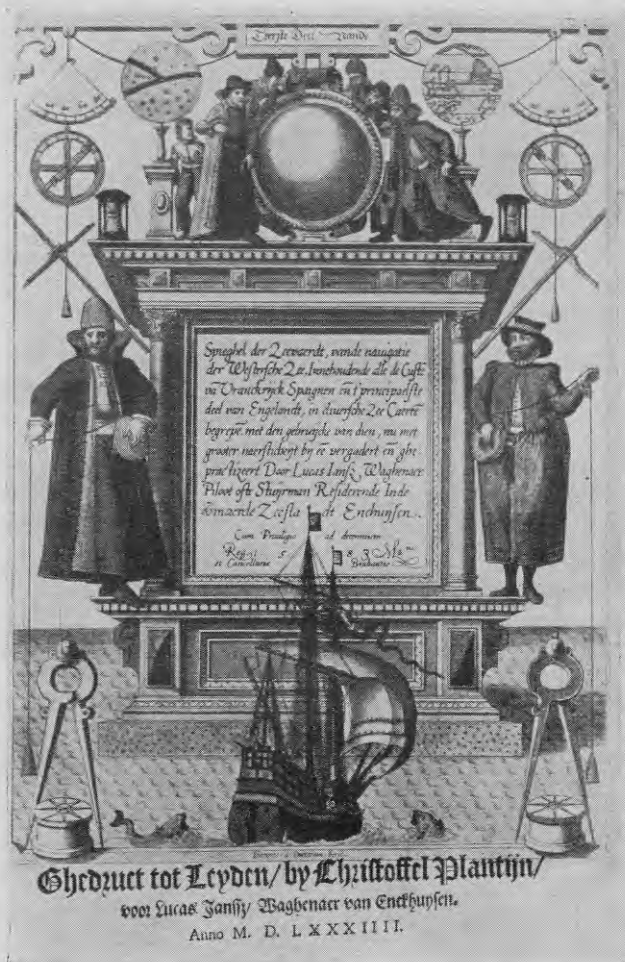 Eerste Deel vande
Spieghel der Zeevaerdt, vande navigatie
der Westersche Zee, Innehoudende alle de Custẽ
vã Vranckrijck Spaignen eñ t'principaelste
deel van Engelandt, in diversche Zee Caertẽ
begrepẽ, met den gebruijcke van dien, nu met
grooter naersticheyt bij eẽ vergadert eñ ghe-
practizeert Door Lucas Iansz Waghenaer
Piloot ofte Stuijrman Residerende Inde
vermaerde Zeestadt Enchuijsen.
Cum Privilegio ad decennium
Reg. 15 83
et Cancellarie Brabantie
Ghedruct tot Leyden/ by Christoffel Plantijn/
voor Lucas Janssz/ Waghenaer van Enckhuysen.
Anno M. D. LXXXIIII.